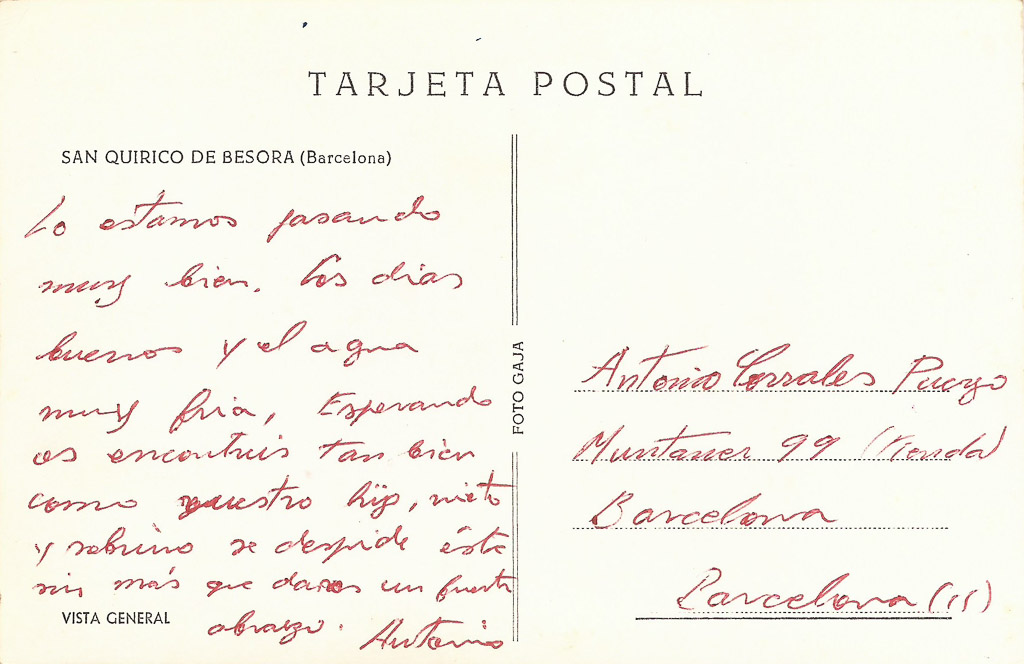 TARJETA POSTAL
SAN QUIRICO DE BESORA (Barcelona)
Lo estamos pasando
muy bien. Los dias
buenos y el agua
muy fria, Esperando
os encontreis tan bien
como vuestro hijo, nieto
y sobrino se despide éste
sin más que daros un fuerte
abrazo. Antonio
VISTA GENERAL
FOTO GAJA
Antonio Corrales Pueyo
Muntaner 99
Barcelona
Barcelona (11)